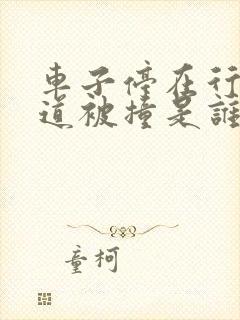 車子停在行
道被撞是誰
童柯